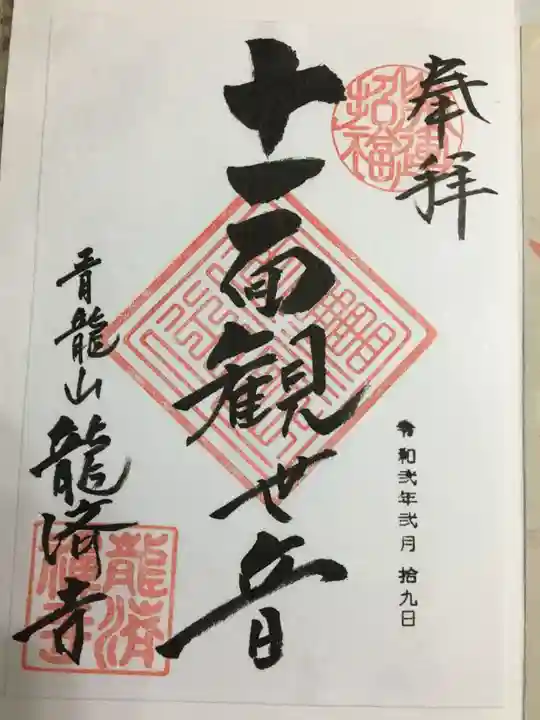 奉拝
招福
令和弐年弐月 拾九日
十一面観世音
青龍山 龍済寺